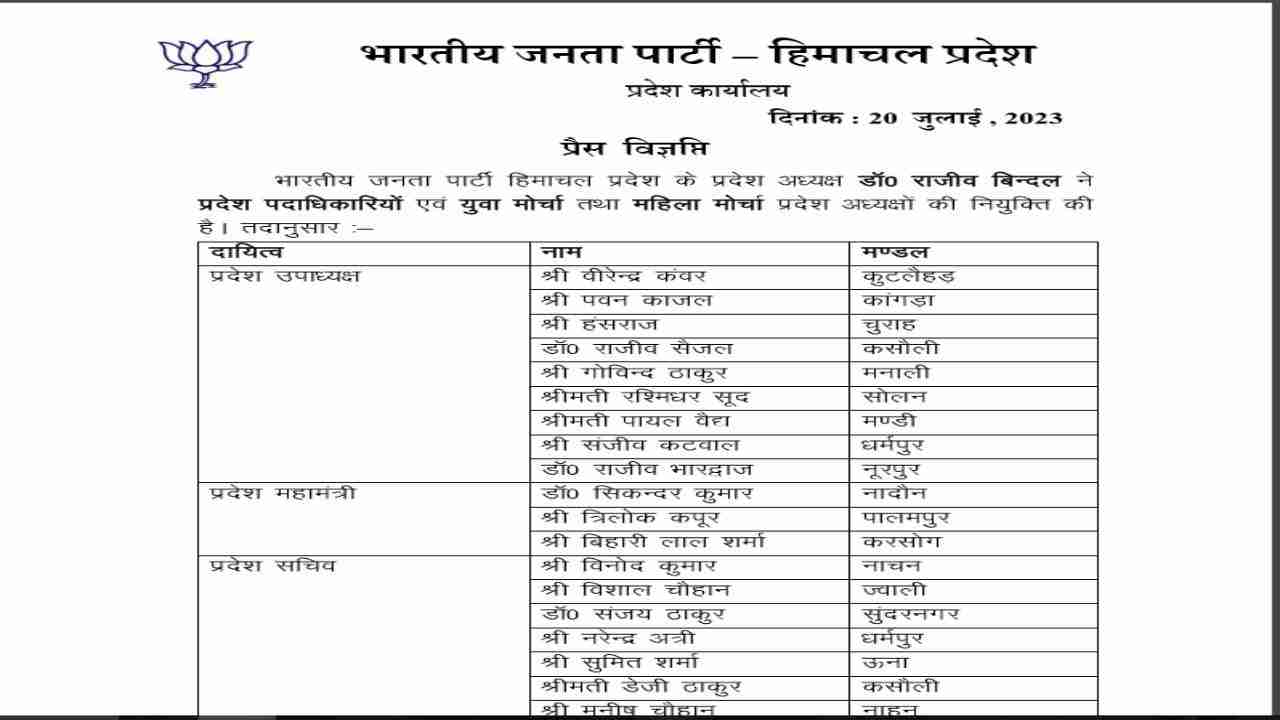 भारतीय जनता पार्टी – हिमाचल प्रदेश
प्रदेश कार्यालय
दिनांक : 20 जुलाई , 2023
प्रैस विज्ञप्ति
भारतीय जनता पार्टी हिमाचल प्रदेश के प्रदेश अध्यक्ष डॉ0 राजीव बिन्दल ने
प्रदेश पदाधिकारियों एवं युवा मोर्चा तथा महिला मोर्चा प्रदेश अध्यक्षों की नियुक्ति की
है। तदानुसार :–
दायित्व नाम मण्डल
प्रदेश उपाध्यक्ष श्री वीरेन्द्र कंवर कुटलैहड़
श्री पवन काजल कांगड़ा
श्री हंसराज चुराह
डॉ0 राजीव सैजल कसौली
श्री गोविन्द ठाकुर मनाली
श्रीमती रश्मिधर सूद सोलन
श्रीमती पायल वैद्य मण्डी
श्री संजीव कटवाल धर्मपुर
डॉ0 राजीव भारद्वाज नूरपुर
प्रदेश महामंत्री डॉ0 सिकन्दर कुमार नादौन
श्री त्रिलोक कपूर पालमपुर
श्री बिहारी लाल शर्मा करसोग
प्रदेश सचिव श्री विनोद कुमार नाचन
श्री विशाल चौहान ज्वाली
डॉ0 संजय ठाकुर सुंदरनगर
श्री नरेन्द्र अत्री धर्मपुर
श्री सुमित शर्मा ऊना
श्रीमती डेजी ठाकुर कसौली
श्री मनीष चौहान नाहन